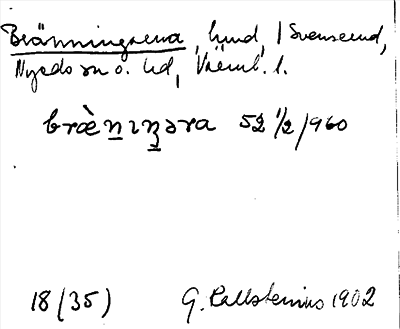 Bränningarna, lund, i Svenserud,
Nyeds sn o. hd, Värml. l.
bræ̀n̲ın̲ɡəra 52 1/2 /960
18 (35) G. Kallstenius 1902